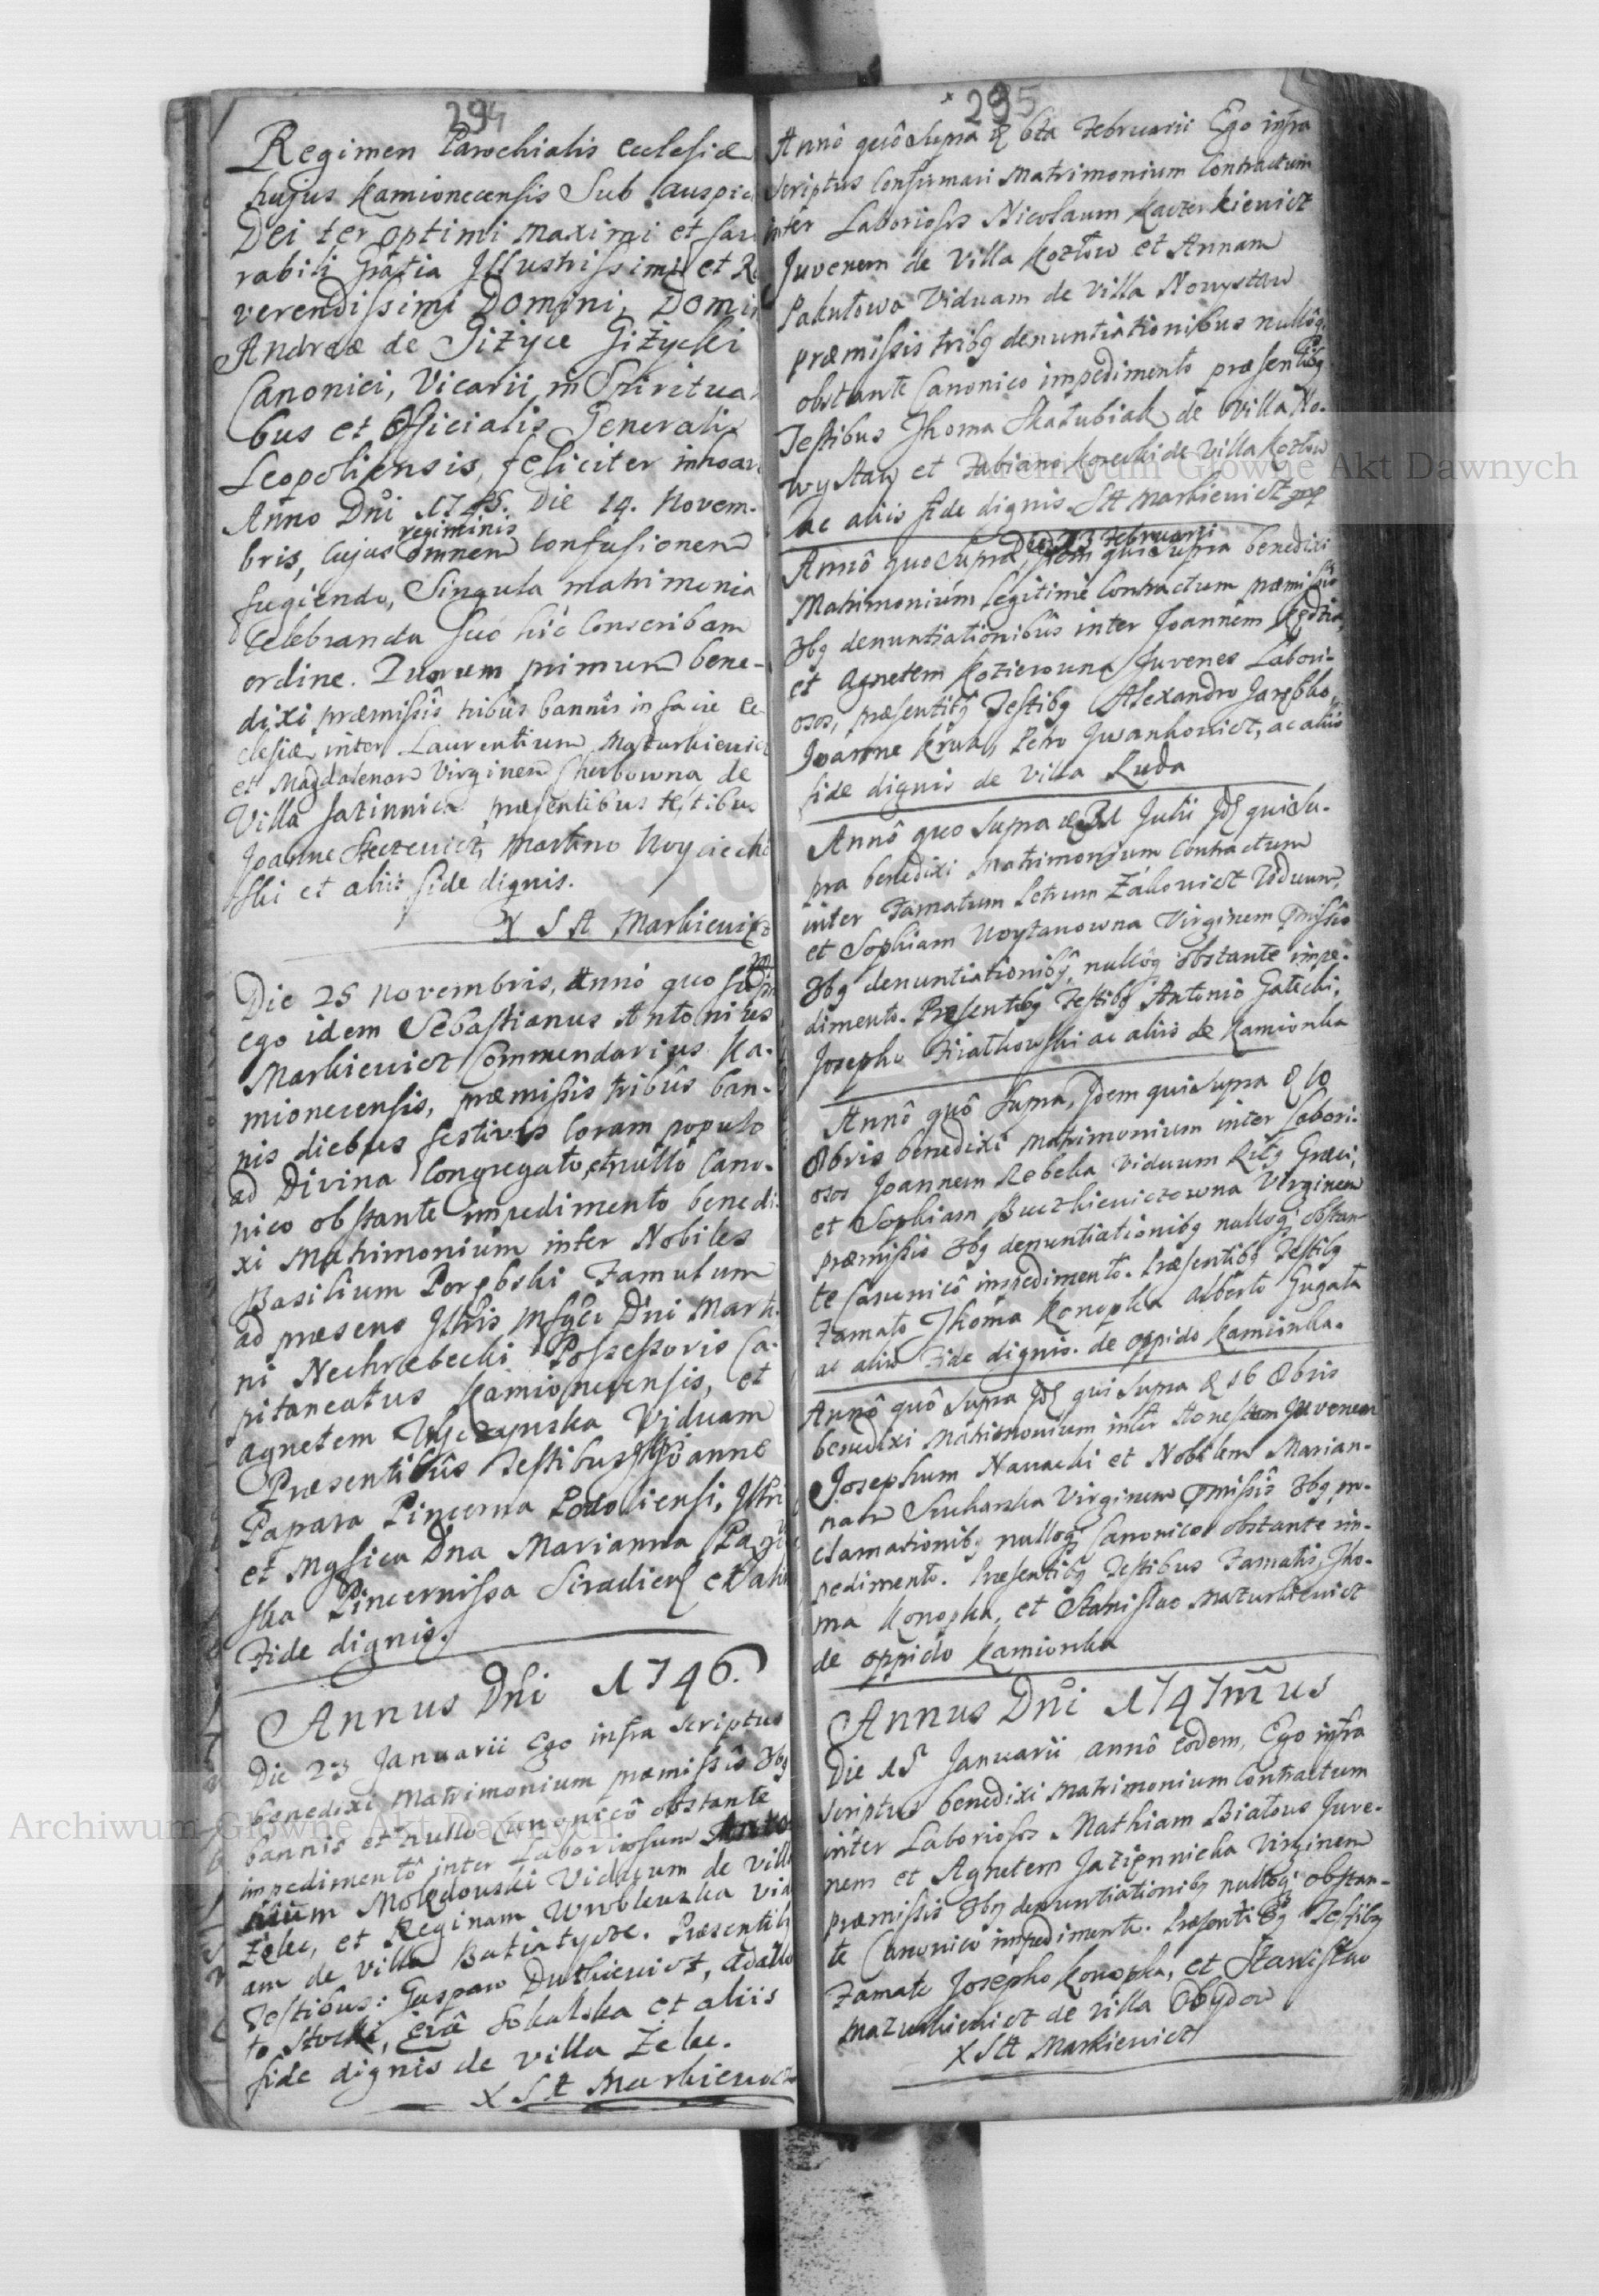 294
Regimen Parochialis Ecclesiæ
hujus Kamionecensis Sub auspici
Dei ter optimi Maximi et favo
rabili Gratia Illustrissimi et Re
verendissimi Domini, Domini
Andreæ de Giżyce Giżycki
Canonici, Vicarii in Spiritua
bus et Officialis Generalis
Leopoliensis, feliciter inhoa
Anno Dni 1745. Die 14. Novem-
regiminis
bris, Cujus omnem confusionem
fugiendo, Singula matrimonia
celebranda suo hic conscribam
ordine. Quorum primum bene-
dixi præmissis tribus bannis in facie Ec-
clesiæ inter Laurentium Maturkievic
et Magdalenam Virginem Cherbowna de
Villa Jazinnica præsentibus testibus
Joanne Steczevicz, Martino Woyciecho
ski et aliis fide dignis.
X S A Markievicz
Die 25 Novembris, Anno quo supra
ego idem Sebastianus Antonius
Markievicz Commendarius Ka-
mionecensis, præmissis tribus ban-
nis diebus festivis coram populo
ad Divina Congregato, et nullo Cano-
nico obstante impedimento benedi-
xi Matrimonium inter Nobiles
Basilium Porębski Famulum
ad præsens Illris Mfgci Dni Marti-
ni Nechrebecki Possessoris Ca-
pitaneatus Kamionecensis, et
Agnetem Viduam
Præsentibus Testibus Joanne
Papara Pincerna Podoliensi, Illri
et Mgfica Dna Marianna
ska Pincernissa Siradiens et aliis
Fide dignis.
Annus Dni 1746.
Die 23 Januarii Ego infra scriptus
benedixi Matrimonium præmissis 3bg
bannis et nullo Canonicô obstante
impedimentô inter Laboriosum Anto
nium Molędowski Viduum de Villa
Żelec, et Reginam Wroblewska Vidu
am de Villa Batiatycze. Præsentibg
Testibus: Gaspare Dutkievicz, Adalb
to Stocki, Evâ Sokalska et aliis
fide dignis de Villa Żelec.
X S A Markievicz
295
Annô quô Supra d 6ta Februarii Ego infra
scriptus Confirmavi Matrimonium Contractum
inter Laboriosos Nicolaum Kaczerkievicz
Juvenem de Villa Kozłow et Annam
Pakułowa Viduam de Villa Nowystaw
præmissis tribg denuntiationibus nullôq
obstante Canonico impedimento præsentibg
Testibus Thoma Skałubiak de Villa No-
wystaw et Fabiano Korecki de Villa Kozłow
ac aliis fide dignis. SA Markievicz
Die 13 Februarii
Annô quo Supra, Idem qui supra benedixi
Matrimonium legitime Contractum præmissis
3bg denuntiationibus inter Joannem
et Agnetem Kozierowna Juvenes Labori-
osos, præsentibg Testibg Alexandro Jarębko,
Joanne Kruk, Petro Jwankovicz, ac aliis
fide dignis de Villa Ruda
Annô quo Supra d 31 Julii Id qui Su-
pra benedixi Matrimonium Contractum
inter Famatum Petrum Żakovicz Viduum,
et Sophiam Woytanowna Virginem pmissis
3bg denuntiationibg, nullôq obstante impe-
dimento. Præsentibg Testibg Antonio Gałecki,
Josepho Fiałkowski ac aliis de Kamionka
Annô quô Supra, Idem qui supra d 10
8bris benedixi Matrimonium inter Labori-
osos Joannem Rebeka Viduum Ritg Græci,
et Sophiam Buczkieviczowna Virginem
præmissis 3bg denuntiationibg nulloq obstan-
te Canonicô impedimento. Præsentibg Testibg
Famato Thoma Konopka Alberto Gugała
ac aliis Fide dignis. de oppido Kamionka.
Annô quô Supra Id qui Supra d 16 8bris
benedixi Matrimonium inter Honestum Juvenem
Josephum Nawacki et Nobilem Marian-
nam Sucharska Virginem pmissis 3bg pro-
clamationibg nulloq Canonico obstante im-
pedimento. Præsentibg Testibus Famatis, Tho-
ma Konopka, et Stanislao Maturkievicz
de oppido Kamionka
Annus Dni 1747mus
Die 15 Januarii annô eodem, Ego infra
scriptus benedixi Matrimonium Contractum
inter Laboriosos Mathiam Białous Juve-
nem et Agnetem Jazięnnicka Virginem
præmissis 3bg denuntiationibg nulloq obstan-
te Canonico impedimento. Præsentibg Testibg
Famato Josepho Konopka, et Stanislao
Mazurkievicz de Villa Obydow
X SA Markievicz
Archiwum Główne Akt Dawnych
Archiwum Główne Akt Dawnych